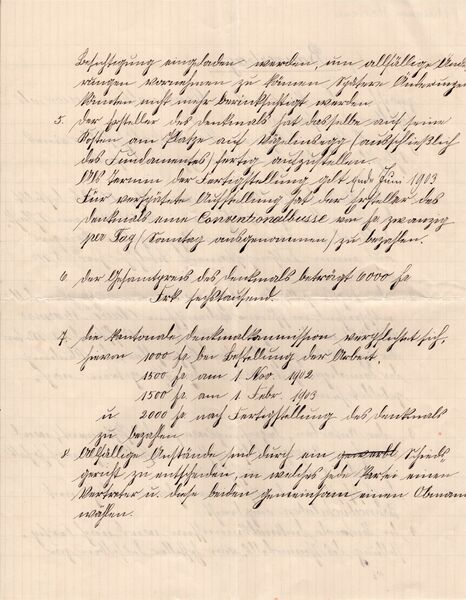 Besichtigung eingeladen werden, um allfällige Ände
rungen vornehmen zu können Spätere Änderungen
könnten nicht mehr berücksichtigt werden
5. Der Ersteller des Denkmals hat dasselbe auf seine
Kosten am Platze auf Vögelinsegg (ausschließlich
des Fundamentes) fertig aufzustellen.
Als Termin der Fertigstellung gilt Ende Juni 1903
Für verspätete Aufstellung hat der Ersteller des
Denkmals eine Conventionalbusse von fr zwanzig
per Tag (Sonntag ausgenommen) zu bezahlen.
6. Der Gesamtpreis des Denkmals beträgt 6000 fr
Frk. sechstausend.
7. Die kantonale Denkmalkommission verpflichtet sich,
hievon 1000 fr bei Bestellung der Arbeit,
1500 fr am 1 Nov. 1902
1500 fr am 1 Febr. 1903
u 2000 fr nach Fertigstellung des Denkmals
zu bezahlen
8. Allfällige Anstände sind durch ein Schieds
gericht zu entscheiden, in welches jede Partei einen
Vertreter u. diese beiden gemeinsam einen Obmann
wählen.